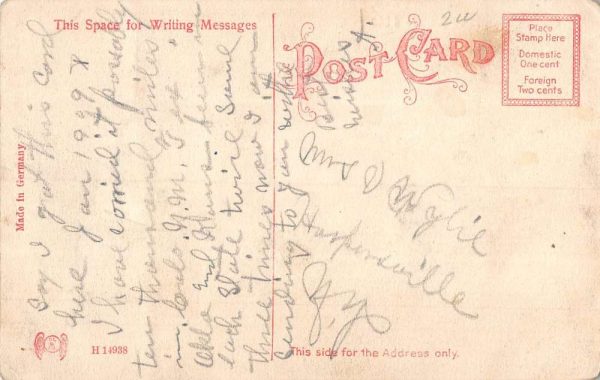 This Space for Writing Messages
POST CARD
Place
Stamp Here
Domestic
One cent
Foreign
Two cents
Made in Germany
H 14938
This side for the Address only.
Say I got this card
here Jan 1909 &
I have carried it possibly
ten thousand miles
in Colo N.M. Tex
Okla and Kans been in
each State twice Some
three times now I am
sending to you with
Best
wishes
A.
Sam D Wylie
Harpersville
N.Y.